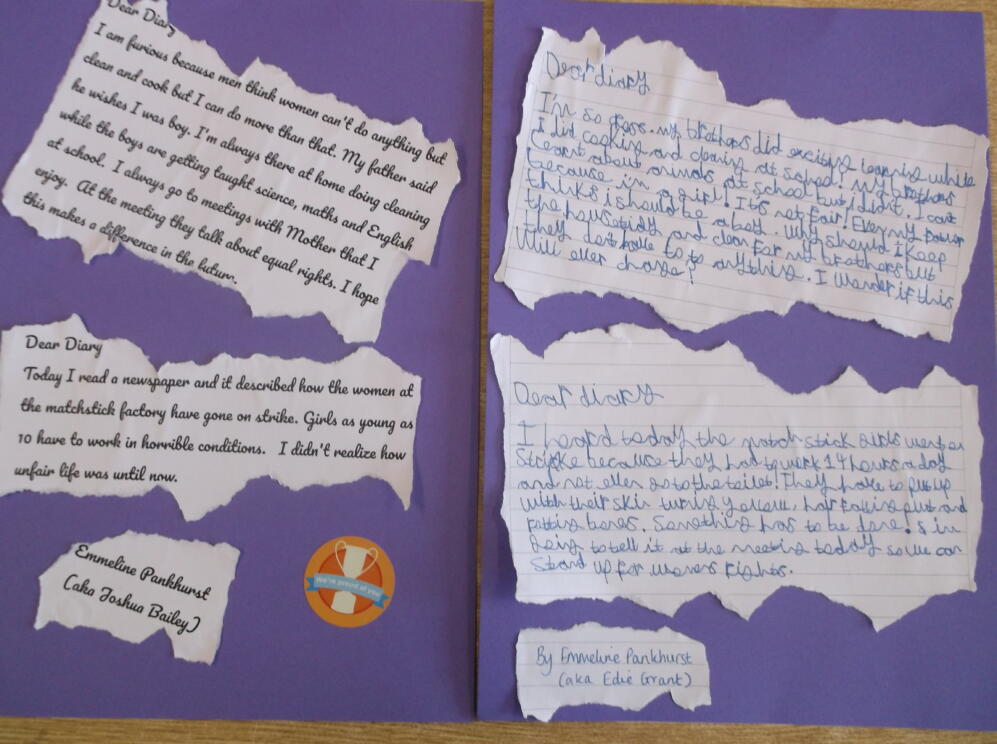 Dear Diary
I am furious because men think women can't do anything but
clean and cook but I can do more than that. My father said
he wishes I was boy. I'm always there at home doing cleaning
while the boys are getting taught science, maths and English
at school. I always go to meetings with Mother that I
enjoy. At the meeting they talk about equal rights. I hope
this makes a difference in the future.
Dear Diary
Today I read a newspaper and it described how the women at
the matchstick factory have gone on strike. Girls as young as
10 have to work in horrible conditions. I didn't realize how
unfair life was until now.
Emmeline Pankhurst
(aka Joshua Bailey)
We're proud of you
Dear diary
I'm so cross. my brothers did exciting learning while
I did cooking and cleaning at school! my brothers
learnt about animals at school but i didn't. I can't
because im a girl! It's not fair! Even my father
thinks i should be a boy. Why should I keep
the house tidy and clean for my brothers but
they dont have to to anything. I wonder if this
Will ever change?
Dear diary
I heard today the match stick girls went on
because they had to work 14 hours a day
and not even go to the toilet! They have to put up
with their skin turning yellow, hair falling out and
rotting bones. Something has to be done!
going to tell it at the meeting today so we can
stand up for womens rights.
By Emmeline Pankhurst
(aka Edie Grant)